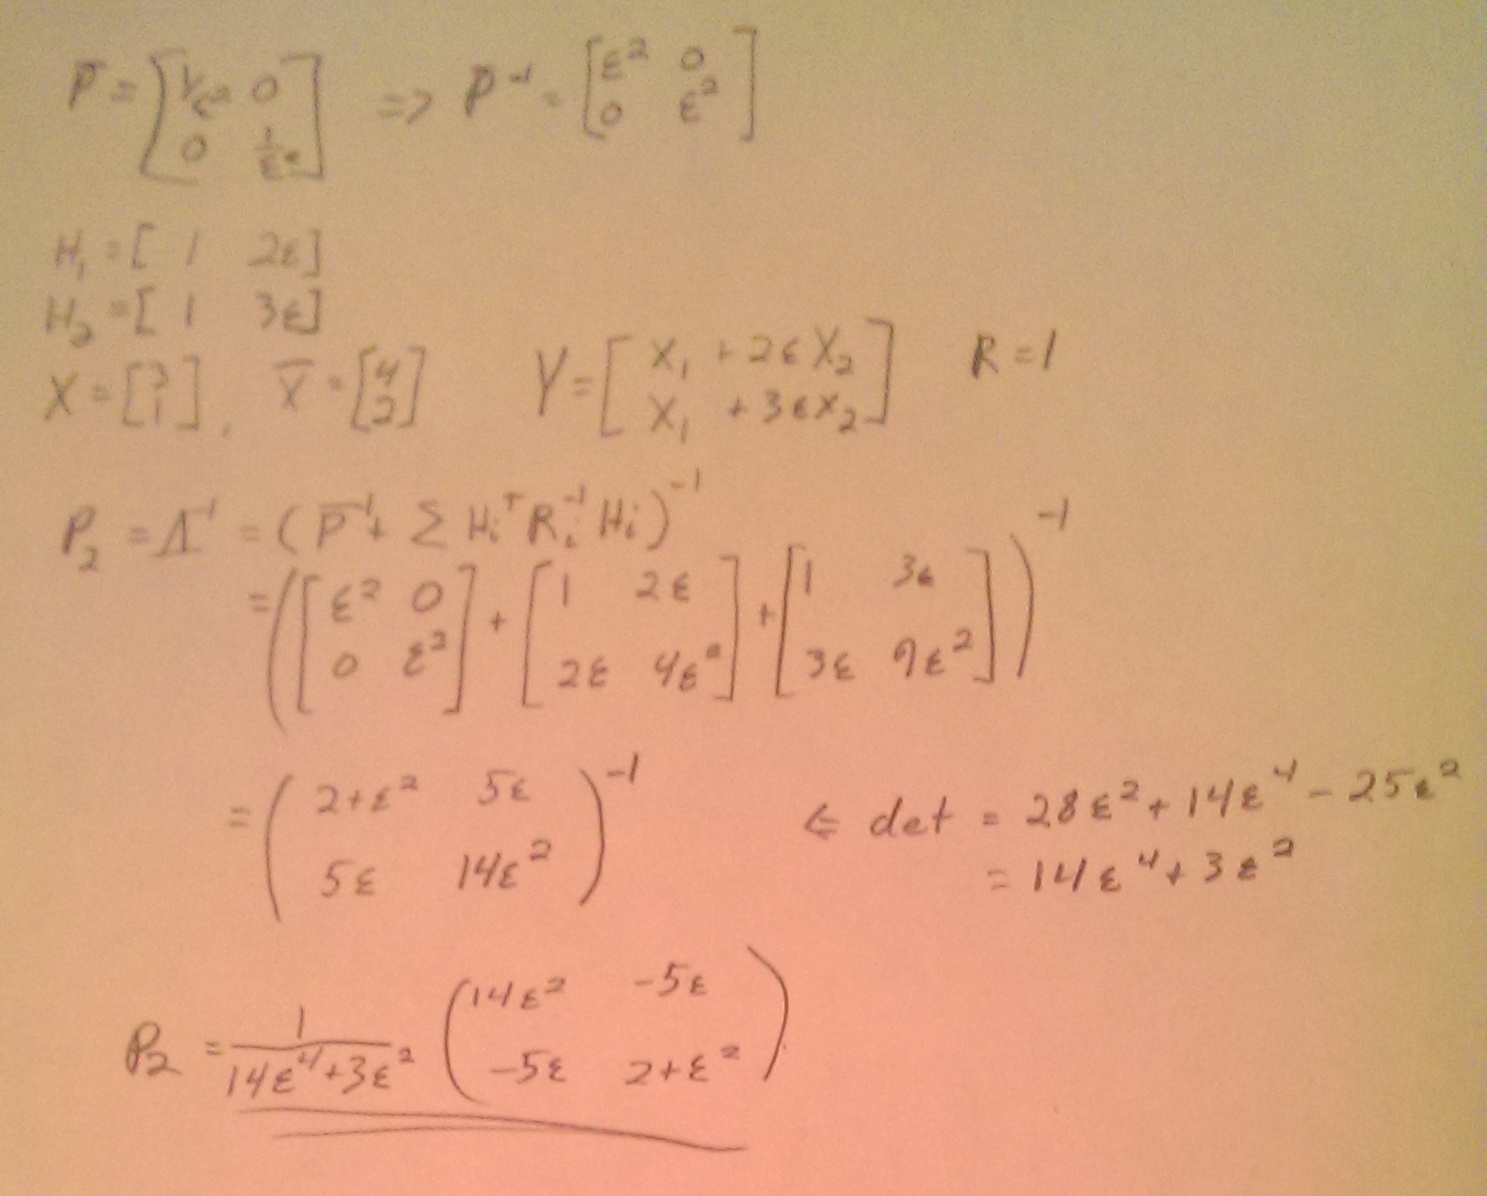 P̄ = [1/ε² 0; 0 1/ε²] => P̄⁻¹ = [ε² 0; 0 ε²]
H₁ = [ 1 2ε]
H₂ = [ 1 3ε]
X = [3; 1], X̄ = [4; 2] Y = [X₁ + 2εX₂; X₁ + 3εX₂] R = 1
P₂ = Λ⁻¹ = (P̄⁻¹ + Σ Hᵢᵀ Rᵢ⁻¹ Hᵢ)⁻¹
= ([ε² 0; 0 ε²] + [1 2ε; 2ε 4ε²] + [1 3ε; 3ε 9ε²])⁻¹
= (2+ε² 5ε; 5ε 14ε²)⁻¹ ⇐ det = 28ε² + 14ε⁴ - 25ε²
= 14ε⁴ + 3ε²
P₂ = 1/(14ε⁴+3ε²) (14ε² -5ε; -5ε 2+ε²)